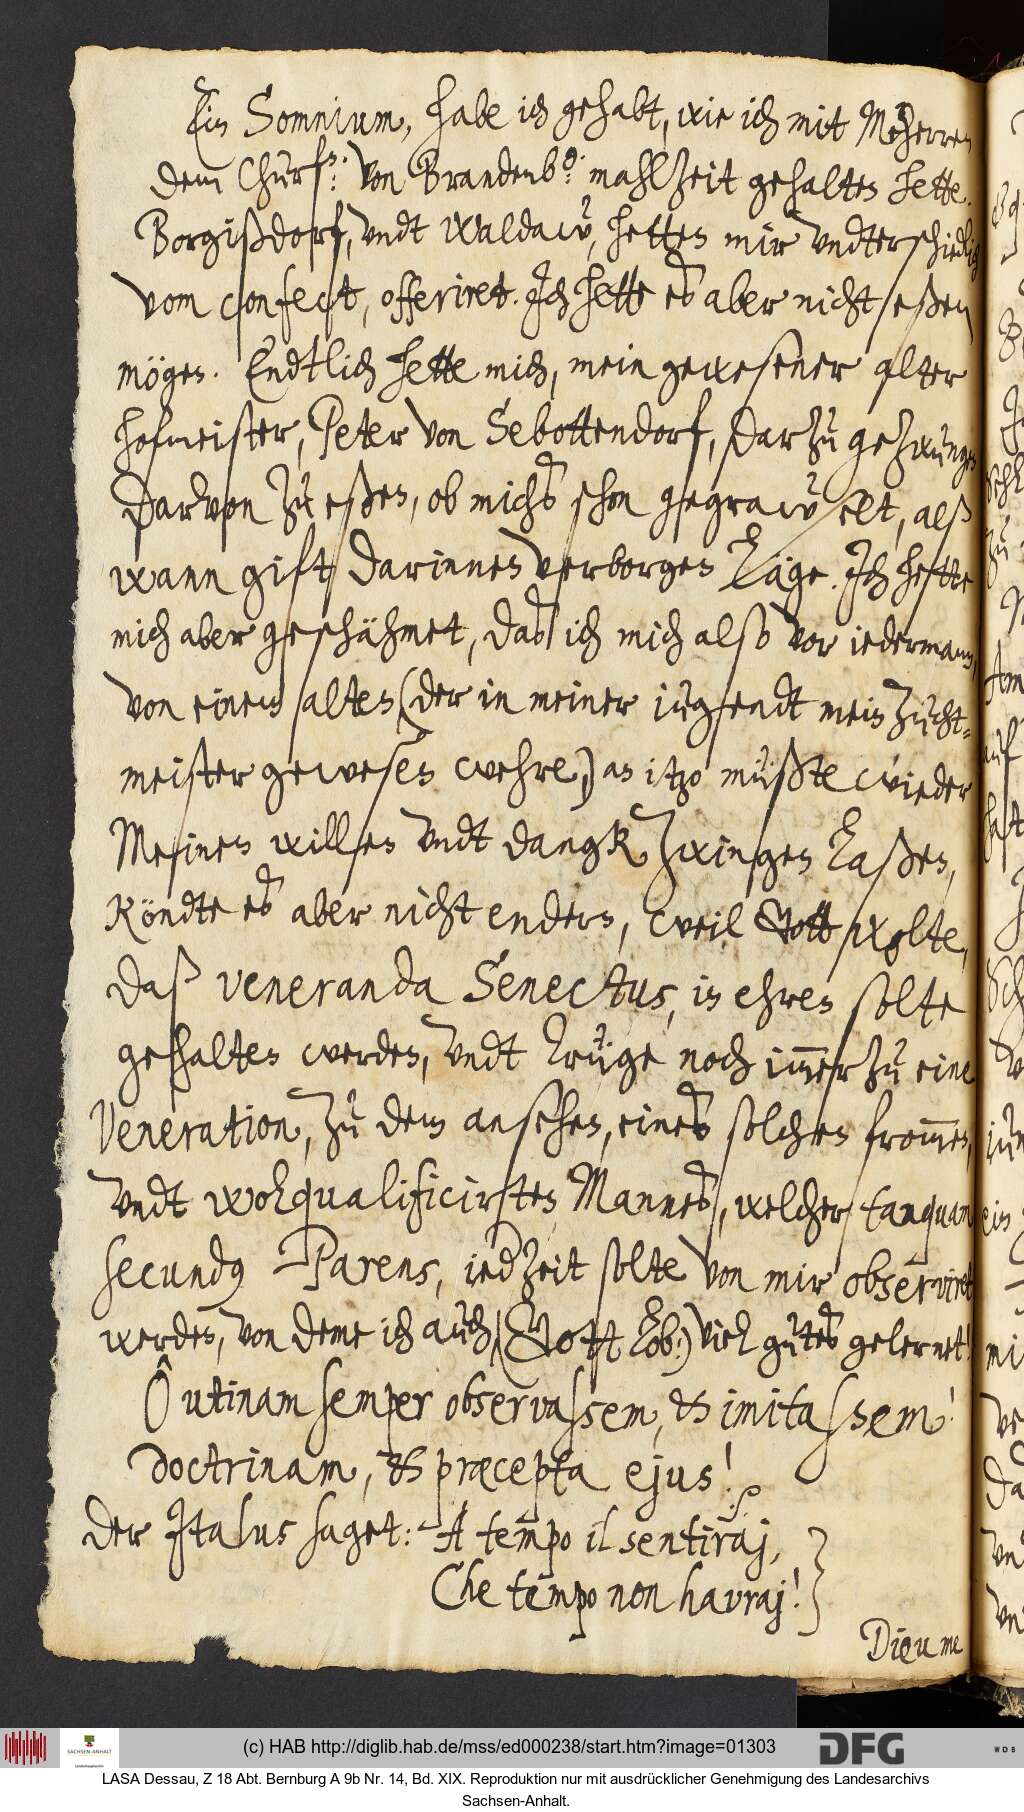 Ein Somnium, habe ich gehabt, wie ich mit Meherren
dem Churfs: von Brandenbg: mahlzeit gehalten hette.
Borgißdorf, undt Waldaw, hetten mir undterschiedlich
vom confect, offeriret. Ich hette es aber nicht eßen
mögen. Endtlich hette mich, mein gewesener alter
hofmeister, Peter von Sebottendorf, darzu gezwungen
darvon zu eßen, ob michs schon gegrawelt, alß
wann gift darinnen verborgen läge. Ich hette
mich aber geschähmet, das ich mich also vor iederman,
von einem alten (der in meiner iugendt mein Zucht-
meister gewesen wehre,) an itzo müßte wieder
Meinen willen undt dangk zwingen laßen,
Köndte es aber nicht enders, weil Gott wolte,
daß veneranda Senectus, in ehren solte
gehalten werden, undt trüge noch immer zu eine
Veneration, zu dem ansehen, eines solchen frommen,
undt wolqualificirten Mannes, welcher tanquam
secundus Parens, iedzeit solte von mir observiret
werden, von deme ich auch, (Gott lob:) viel gutes gelernet!
Ô utinam semper observassem, et imitassem!
doctrinam, et præcepta ejus!
der Italus saget: A tempo il sentiraj,
Che tempo non havraj!
Dieu me
(c) HAB http://diglib.hab.de/mss/ed000238/start.htm?image=01303
DFG
WDB
SACHSEN-ANHALT
LASA Dessau, Z 18 Abt. Bernburg A 9b Nr. 14, Bd. XIX. Reproduktion nur mit ausdrücklicher Genehmigung des Landesarchivs
Sachsen-Anhalt.